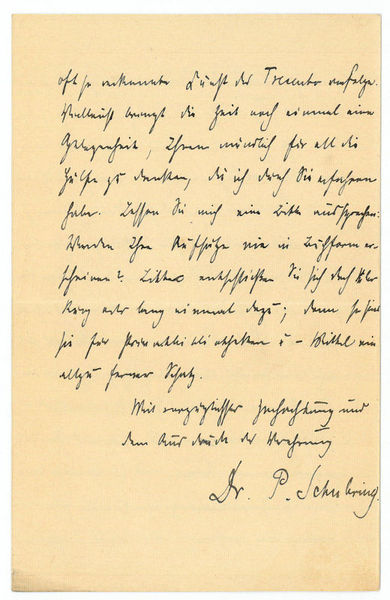 oft so verkannte Kunst des Trecento verfolge.
Vielleicht bringt die Zeit noch einmal eine
Gelegenheit, Ihnen mündlich für all die
Hülfe zu danken, die ich durch Sie erfahren
habe. Lassen Sie mich eine Bitte aussprechen:
Werden Ihre Aufsätze nie in Buchform er-
scheinen? Bitte entschließen Sie sich doch über
kurz oder lang einmal dazu; denn so sind
sie für Privatbibliotheken u – Mittel ein
allzu ferner Schatz.
Mit vorzüglichster Hochachtung und
dem Ausdruck der Verehrung
Dr. P. Schubring.